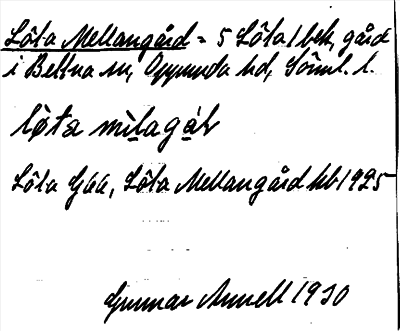 Löta Mellangård = 5 Löta 1 bek, gård
i Bettna sn, Oppunda hd, Söml. l.
löta mìlagáḷ
Löta Gåå, Löta Mellangård kb 1925
Gunnar Annell 1930